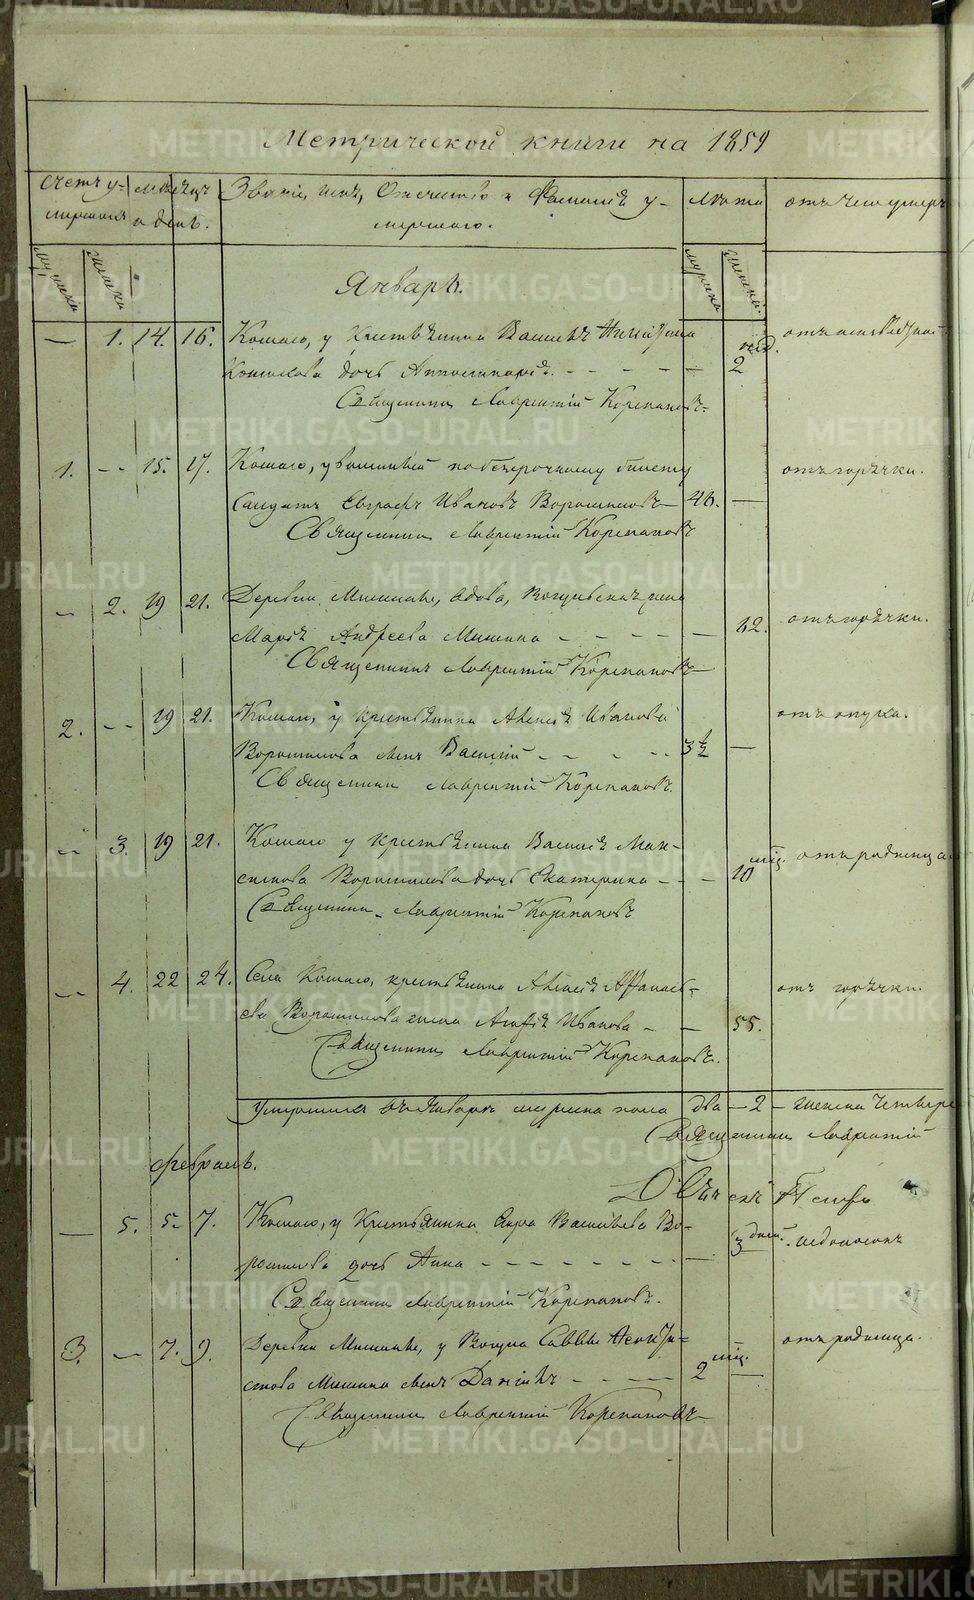 Метрической книги на 1859
Счетъ у-
мершихъ
Мѣсяцъ
и день.
Званіе, имя, Отчество и Фамилія у-
мершаго.
Лѣта
отъ чего умеръ
мужска
женска
мужска
женска
Январь.
— 1. 14. 16. Кошаго, у Крестьянина Василья
дочь 2 нед.
Священникъ Лаврентій Корепановъ
1. — 15. 17. Кошаго, уволенный по безсрочному билету отъ горячки.
Солдатъ Евграфъ Ивановъ Ворошиловъ 46. —
Священникъ Лаврентій Корепановъ
— 2. 19 21. Деревни Мишиной, вдова, жена отъ горячки.
Марія Андреева Мишина — 62.
Священникъ Лаврентій Корепановъ
2. — 19 21. Кошаго, у крестьянина Алексія Иванова
Ворошилова сынъ Василій 3½ —
Священникъ Лаврентій Корепановъ.
— 3. 19 21. Кошаго у крестьянина Василія Мак-
симова Ворошилова дочь Екатерина — 10 мѣс. отъ родимца
Священникъ Лаврентій Корепановъ
— 4. 22 24. Села Кошаго, крестьянина Алексія Афанась-
ева Ворошилова жена Агафія Иванова — 55. отъ горячки.
Священникъ Лаврентій Корепановъ.
Умершихъ въ Январѣ мужска пола два — 2 — женска четыре
Священникъ Лаврентій
Февраль.
— 5. 5. 7. Кошаго, у Крестьянина Васильева Во-
рошилова дочь Анна — 3 дней. недоносокъ
Священникъ Лаврентій Корепановъ.
3. — 7. 9. Деревни Мишиной, у Вогула Саввы отъ родимца.
Мишина сынъ Даніилъ 2 мѣс. —
Священникъ Лаврентій Корепановъ
METRIKI.GASO-URAL.RU